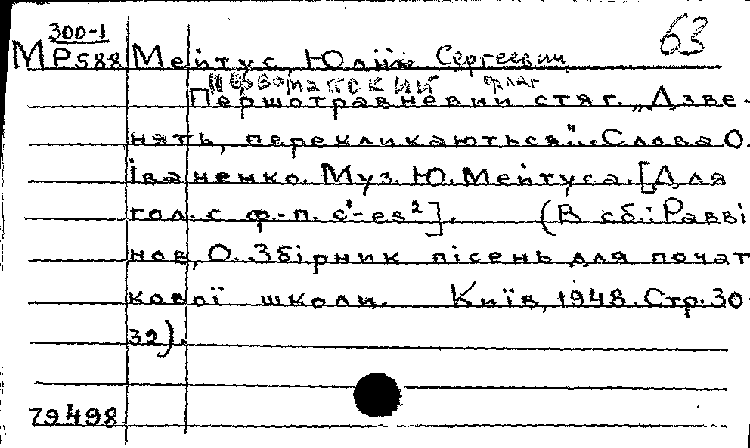 300-1
63
МР588 Мейтус, Юлій Сергеевич
Первомайский флаг
Першотравневий стяг. „Дзве-
нять, перекликаються"... Слова О.
Іваненко. Муз. Ю. Мейтуса. [Для
гол. с ф.-п. c¹-es²]. (В сб.: Раввi
нов, О. Збірник пісень для почат
кової школи. Київ, 1948. Стр. 30-
32).
79498